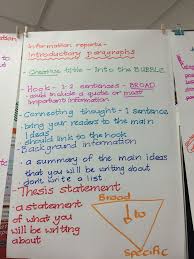 Information reports -
Introductory paragraphs
Creative title - Into the BUBBLE
Hook - 1-2 sentences - BROAD
could include a quote or most
important information
Connecting thought - 1 sentence
bring your readers to the main
ideas
should link to the hook
Background information
a summary of the main ideas
that you will be writing about
don't write a list.
Thesis statement
a statement
of what you
will be writing
about
Broad
to
Specific